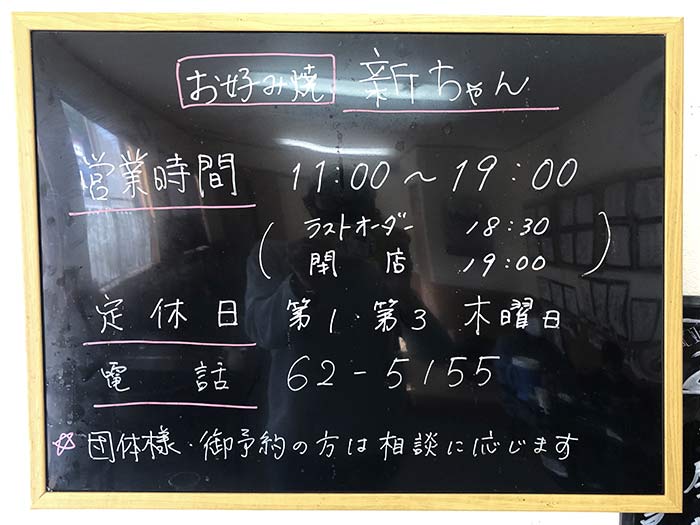 お好み焼 新ちゃん
営業時間 11:00~19:00
(ラストオーダー 18:30
閉店 19:00)
定休日 第1・第3 木曜日
電話 62-5155
☆団体様・御予約の方は相談に応じます